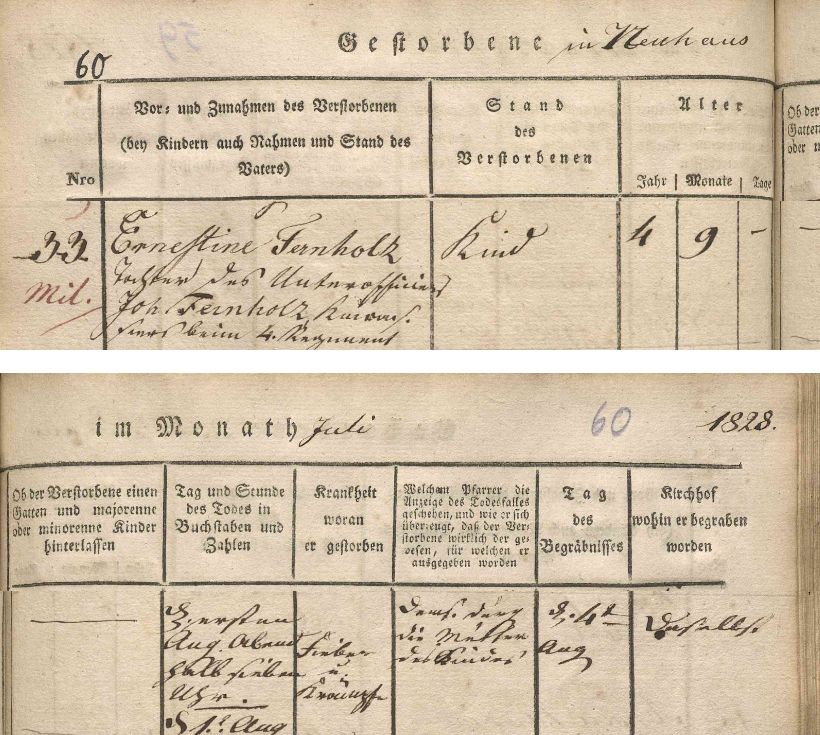 Gestorbene in Neuhaus
60
Vor= und Zunahmen des Verstorbenen
(bey Kindern auch Nahmen und Stand des
Vaters)
Nro
Stand
des
Verstorbenen
Alter
Jahr Monate Tage
Ob der
Gatten
oder m
33
Mil.
Ernestine Fernholz
Tochter des Unterofficiers
Joh Fernholz Küras.
siers beim 4. Regiment
Kind
4
9
–
im Monath Juli
60
1828.
Ob der Verstorbene einen
Gatten und majorenne
oder minorenne Kinder
hinterlassen
Tag und Stunde
des Todes in
Buchstaben und
Zahlen
Krankheit
woran
er gestorben
Welchem Pfarrer die
Anzeige des Todesfalles
geschehen, und wie er sich
überzeugt, daß der Ver=
storbene wirklich der ge=
wesen, für welchen er
ausgegeben worden
Tag
des
Begräbnisses
Kirchhof
wohin er begraben
worden
D. ersten
Aug. Abend
halb sieben
Uhr.
D 1t. Aug
Fieber
u.
Krämpfe
Dems. durch
die Mutter
des Kindes
D. 4t
Aug
Daselbst